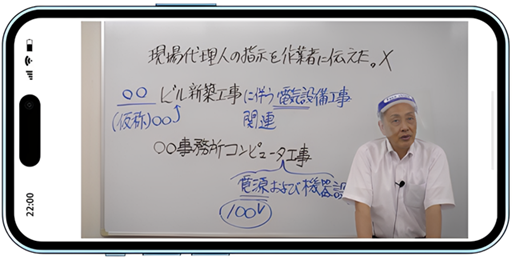 現場代理人の指示を作業者に伝えた。×
○○ビル新築工事に伴う電気設備工事
(仮称)○○
関連
○○事務所コンピュータ工事
電源および機器設
100V
22:00